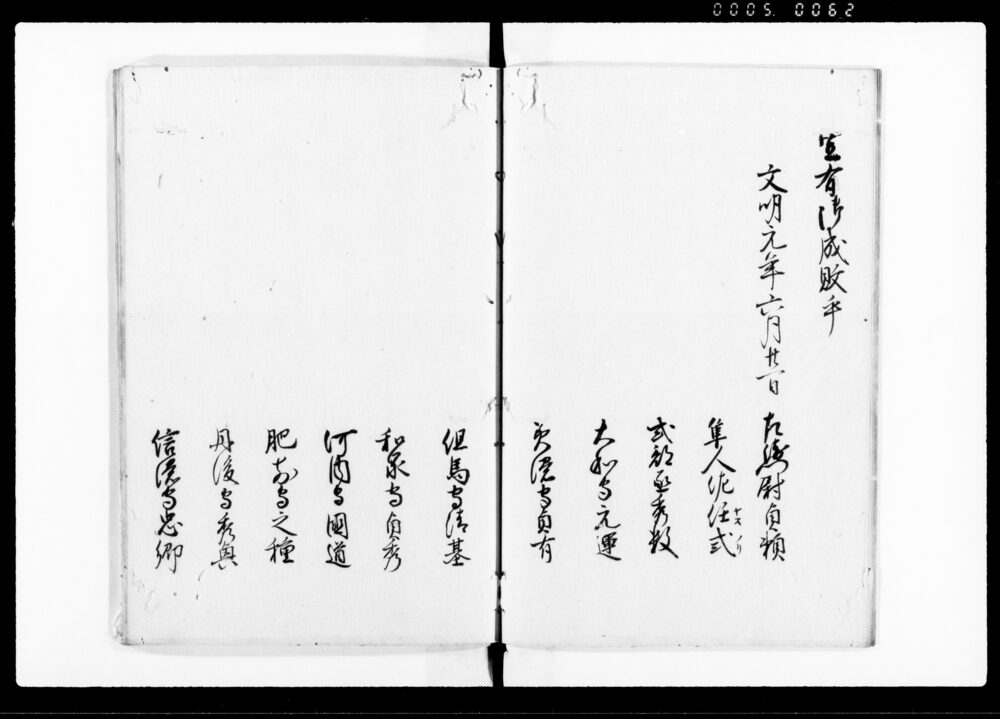 0005 0062
宜有御成敗乎
文明元年六月廿一日 左衛門尉貞頼
隼人佐任式
式部丞秀数
大和守元連
美濃守貞有
但馬守清基
和泉守貞秀
河内守國道
肥前守之種
丹後守秀興
信濃守忠郷